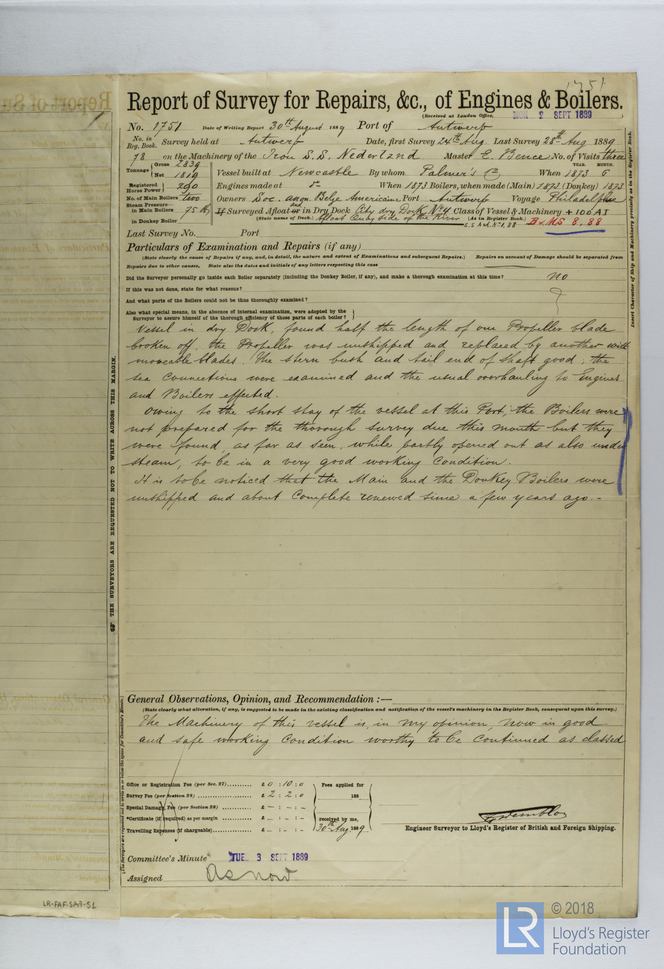 1751
Report of Survey for Repairs, &c., of Engines & Boilers.
(Received at London Office, MON 2 SEPT 1889
No. 1751 Date of Writing Report 30th August 1889 Port of Antwerp
No. in Reg. Book. Survey held at Antwerp Date, first Survey 24th Aug Last Survey 28th Aug 1889
78 on the Machinery of the Iron S.S. Nederland Master E. Bence No. of Visits three
Tonnage Gross 2839 Net 1819 Vessel built at Newcastle By whom Palmer's Co When 1873 6
YEAR. MONTH.
Registered Horse Power Engines made at When 1873 Boilers, when made (Main) 1873 (Donkey) 1873
No. of Main Boilers two Owners Soc. anon. Belge Americaine Port Antwerp Voyage Philadelphia
Steam Pressure in Main Boilers 75 lb If Surveyed Afloat or in Dry Dock City dry Dock No 4 Class of Vessel & Machinery +100A1
in Donkey Boiler (State name of Dock.) River (As in Register Book.) B&MS 8.88
Last Survey No. Port
Particulars of Examination and Repairs (if any)
(State clearly the cause of Repairs if any, and, in detail, the nature and extent of Examinations and subsequent Repairs.) Repairs on account of Damage should be separated from
Repairs due to other causes. State also the dates and initials of any letters respecting this case
Did the Surveyor personally go inside each Boiler separately (including the Donkey Boiler, if any), and make a thorough examination at this time? no
If this was not done, state for what reasons?
And what parts of the Boilers could not be thus thoroughly examined?
Also what special means, in the absence of internal examination, were adopted by the
Surveyor to assure himself of the thorough efficiency of those parts of each boiler?
Vessel in dry Dock, found half the length of one Propeller blade
broken off, the Propeller was unshipped and replaced by another with
moveable blades. The stern bush and tail end of shaft good; the
sea connections were examined and the usual overhauling to Engines
and Boilers effected.
Owing to the short stay of the vessel at this Port, the Boilers were
not prepared for the thorough survey due this month but they
were found, as far as seen, while partly opened out as also under
steam, to be in a very good working condition.
It is to be noticed that the Main and the Donkey Boilers were
unshipped and about complete renewed since a few years ago.-
General Observations, Opinion, and Recommendation :—
(State clearly what alteration, if any, is suggested to be made in the existing classification and notification of the vessel's machinery in the Register Book, consequent upon this survey.)
The Machinery of this vessel is, in my opinion, now in good
and safe working condition worthy to be continued as classed
Office or Registration Fee (per Sec. 27) £0 : 10 : 0 Fees applied for
Survey Fee (per Section 28) £2 : 2 : 0 188
Special Damage Fee (per Section 28) £- : - : -
*Certificate (if required) as per margin £- : - : - received by me,
Travelling Expenses (if chargeable) £- : - : - 30th Aug 1889
Engineer Surveyor to Lloyd's Register of British and Foreign Shipping.
Committee's Minute TUE. 3 SEPT 1889
Assigned As now
OF THE SURVEYORS ARE REQUESTED NOT TO WRITE ACROSS THIS MARGIN.
Insert Character of Ship and Machinery precisely as in the Register Book.
LR-FAF-SA9-51
© 2018
LR
Lloyd's Register
Foundation